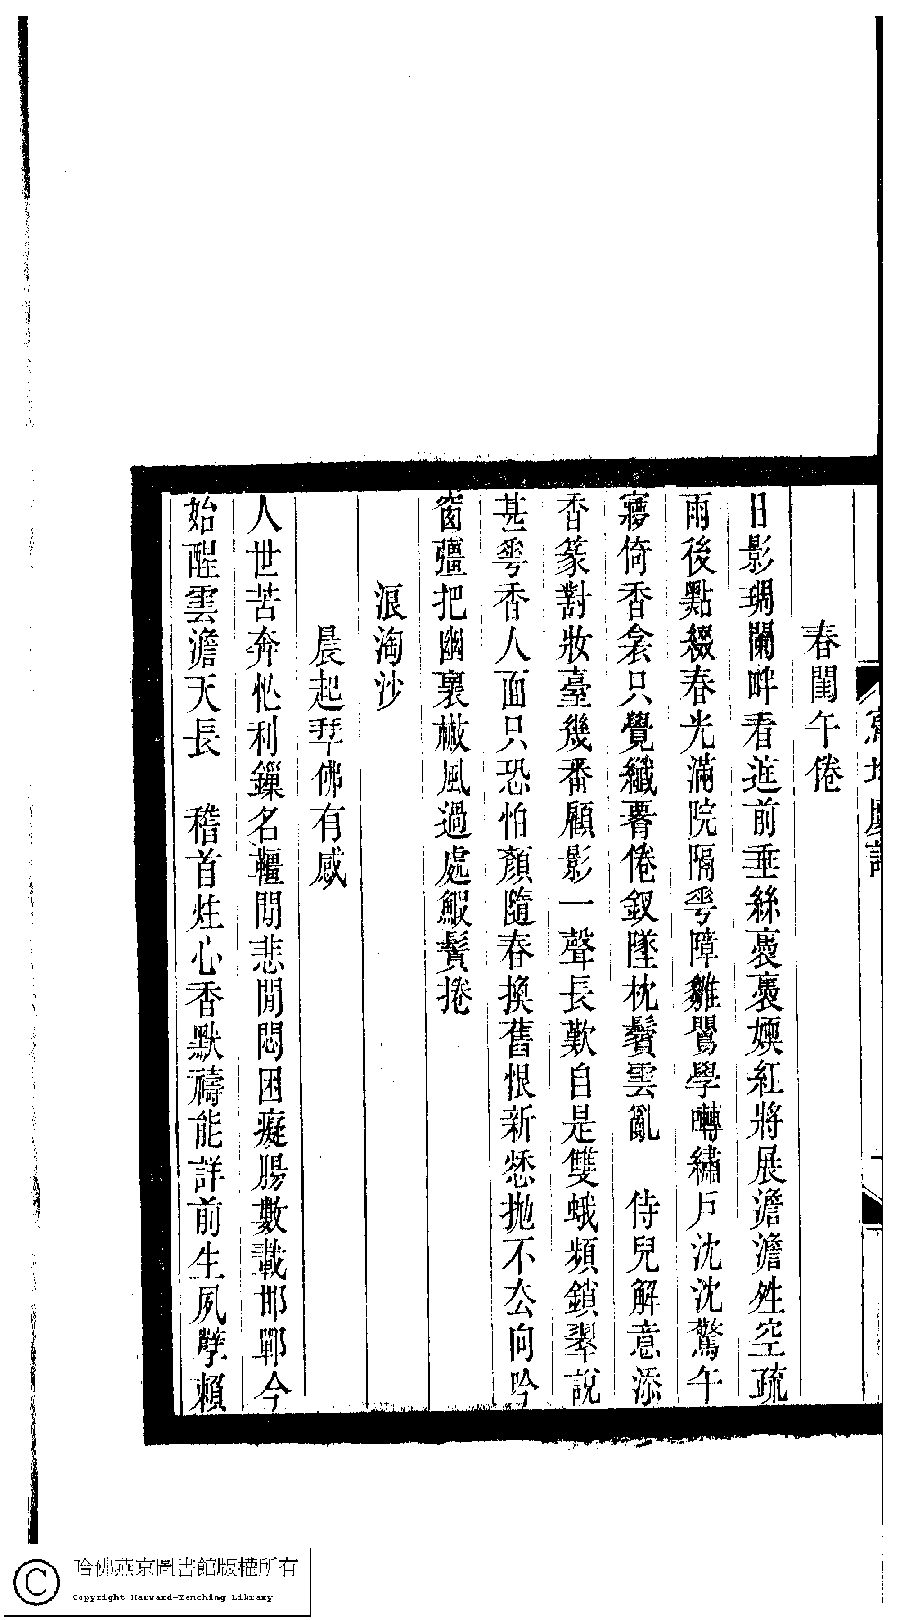 春閨午倦
日影琱闌畔看遊前垂絲裊裊嫩紅將展澹澹殅空疏
雨後點綴春光滿院隔雩障雛鸎學囀繡戶沈沈驚午
寢倚香衾只覺纖羣倦釵墜枕鬢雲亂　侍兒解意添
香篆對妝臺幾番顧影一聲長歎自是雙蛾頻鎖翠說
甚雩香人面只恐怕顏隨春換舊恨新愁拋不厺向吟
窗彊把幽襄檄風過處鰕鬚捲
浪淘沙
晨起拜佛有感
人世苦奔忙利鏁名韁閒悲閒悶困癡腸數載邯鄲今
始醒雲澹天長　稽首炷心香默禱能詳前生夙孽賴
哈佛燕京圖書館版權所有
Copyright Harvard-Yenching Library